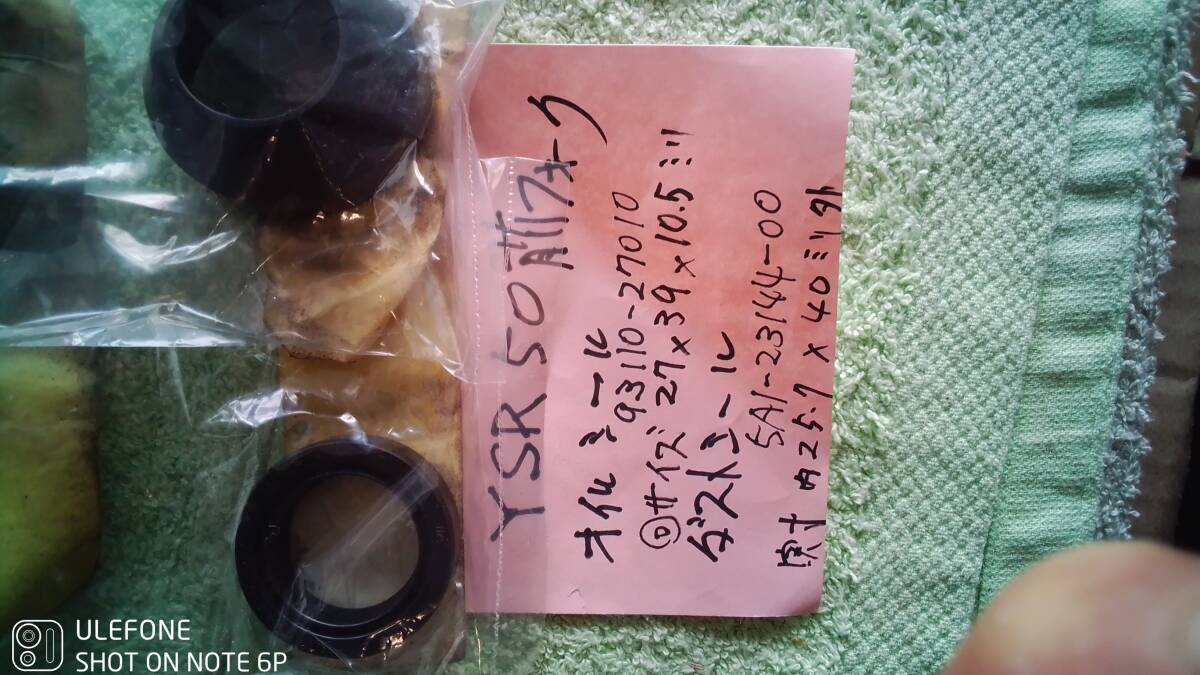 YSR50前フォーク
オイルシール
93110-27010
サイズ 27×39×10.5ミリ
ダストシール
5A1-23144-00
実寸 内25.7×40ミリ外
ULEFONE
SHOT ON NOTE 6P